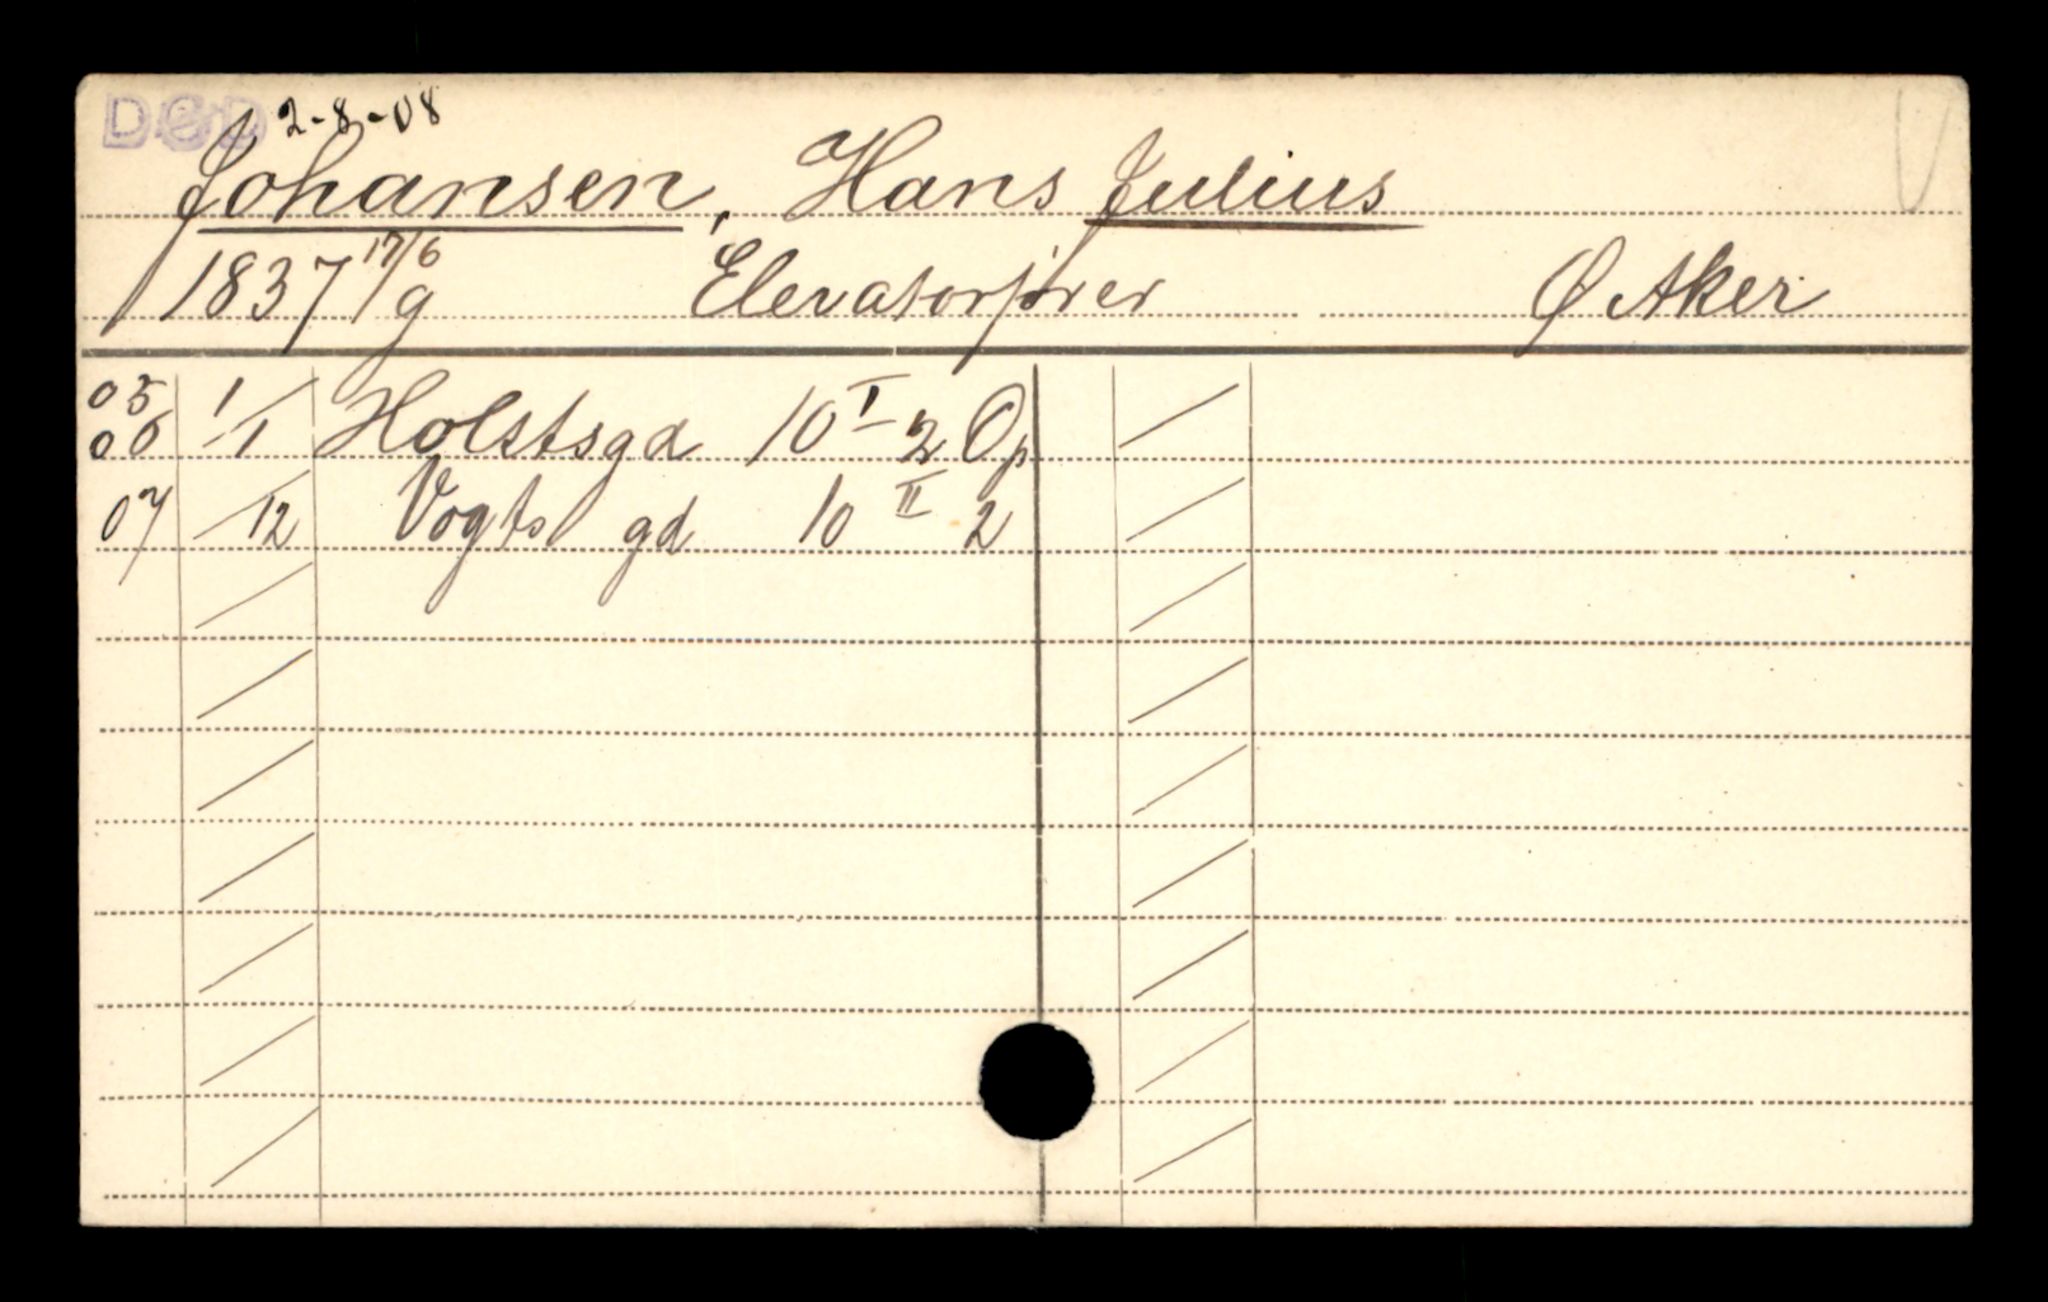 DØD 2-8-08
Johansen, Hans Julius
1837 17/6 g Elevatorfører Ø Aker
05 1/
06 /1 Holstsgd 10 I 2 Op
07 /12 Vogts gd 10 II 2